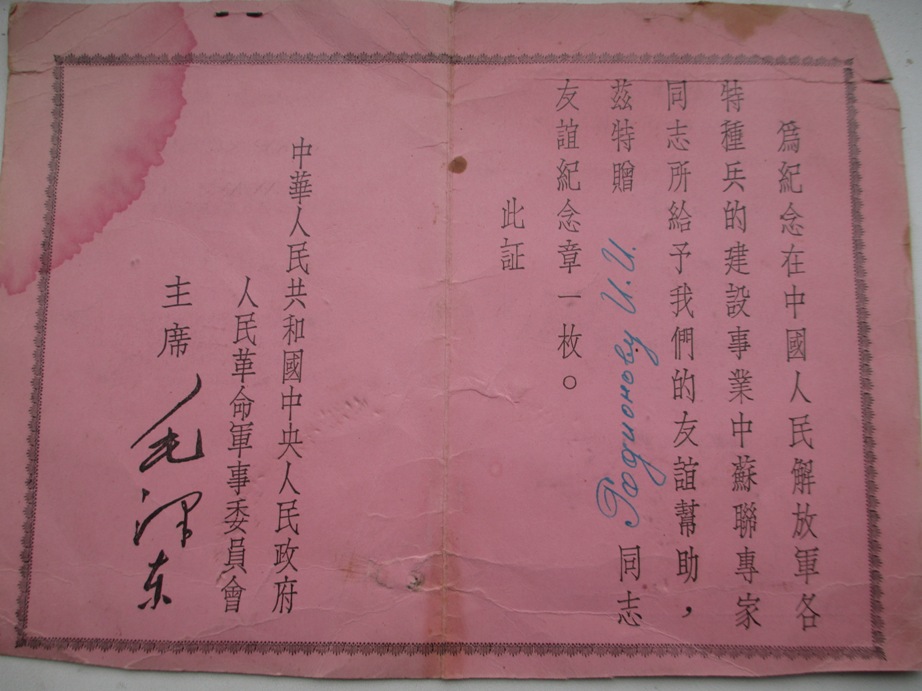 為紀念在中國人民解放軍各
特種兵的建設事業中蘇聯專家
同志所給予我們的友誼幫助，
茲特贈 Родионову И. И. 同志
友誼紀念章一枚。
此証
中華人民共和國中央人民政府
人民革命軍事委員會
主席 毛泽东